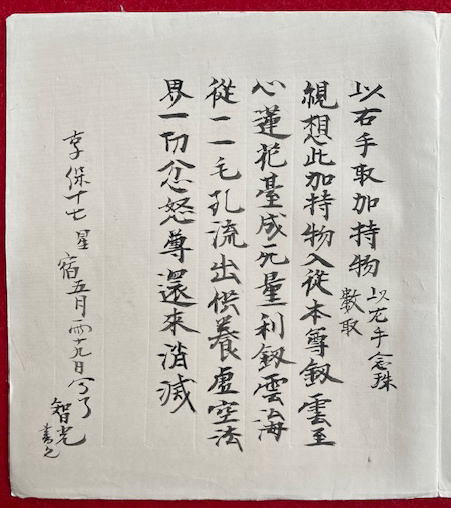 以右手取加持物
以左手念珠
數取
観想此加持物入從本尊釼雲至
心蓮花臺成无量利釼雲海
從一一毛孔流出供養虛空法
界一切忿怒尊還來消滅
享保十七星
宿五月
日
智光
書之